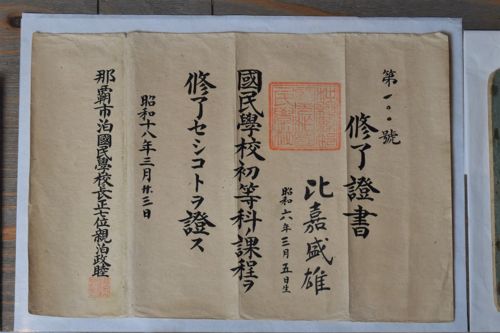 第一〇〇號
修了證書
比嘉盛雄
昭和六年三月五日生
國民學校初等科ノ課程ヲ
修了セシコトヲ證ス
昭和十八年三月廿三日
那覇市泊國民學校長正七位親泊政睦